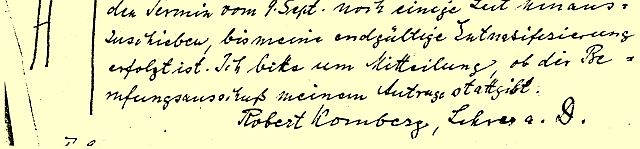 den Termin vom 9. Sept. noch einige Zeit hinaus-
zuschieben, bis meine endgültige Entnazifizierung
erfolgt ist. Ich bitte um Mitteilung, ob der Be-
rufungsausschuß meinem Antrage stattgibt.
Robert Komberg, Lehrer a. D.